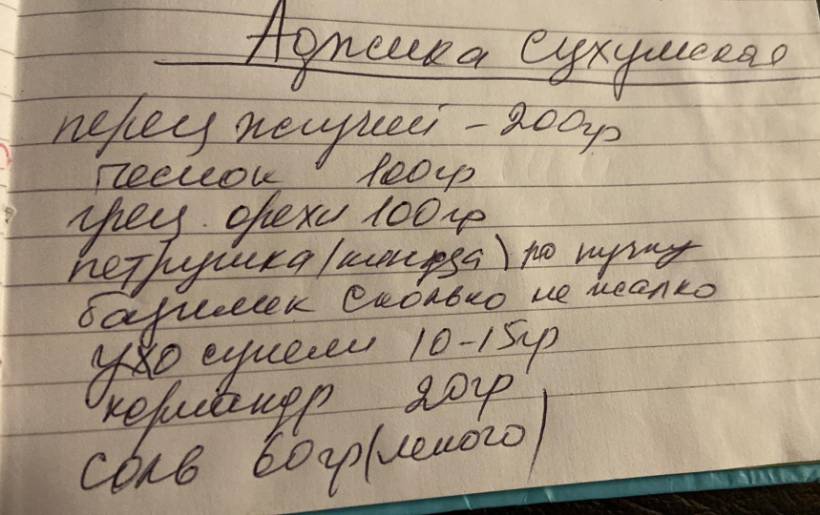 Аджика Сухумская
перец жгучий - 200гр
чеснок 100гр
грец. орехи 100гр
петрушка (кинрза) по пучку
базилик сколько не жалко
ухо сунели 10-15гр
кориандр 20гр
соль 60гр